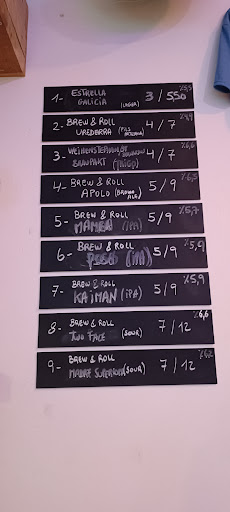 1- ESTRELLA GALICIA (LAGER) 3 / 5,50 %5,5
2- BREW & ROLL UREDERRA (PILS 4 / 7
3- 4 / 7 %6,6
BRAUPAKT (TRIGO)
4- BREW & ROLL APOLO (BROWN ALE) 5 / 9 %6,5
5- BREW & ROLL MAMBA (IPA) 5 / 9 %5,7
6- BREW & ROLL (IPA) 5 / 9 %5,9
7- BREW & ROLL KAIMAN (IPA) 5 / 9 %5,9
8- BREW & ROLL TWO FACE (SOUR) 7 / 12 %6,6
9- BREW & ROLL MADRE SUPERIORA (SOUR) 7 / 12